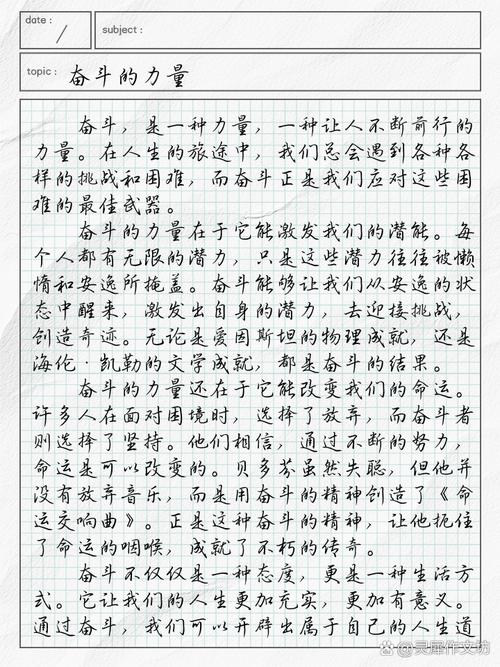 date :
subject :
topic : 奋斗的力量
奋斗，是一种力量，一种让人不断前行的
力量。在人生的旅途中，我们总会遇到各种各
样的挑战和困难，而奋斗正是我们应对这些困
难的最佳武器。
奋斗的力量在于它能激发我们的潜能。每
个人都有无限的潜力，只是这些潜力往往被懒
惰和安逸所掩盖。奋斗能够让我们从安逸的状
态中醒来，激发出自身的潜力，去迎接挑战，
创造奇迹。无论是爱因斯坦的物理成就，还是
海伦·凯勒的文学成就，都是奋斗的结果。
奋斗的力量还在于它能改变我们的命运。
许多人在面对困境时，选择了放弃，而奋斗者
则选择了坚持。他们相信，通过不断的努力，
命运是可以改变的。贝多芬虽然失聪，但他并
没有放弃音乐，而是用奋斗的精神创造了《命
运交响曲》。正是这种奋斗的精神，让他扼住
了命运的咽喉，成就了不朽的传奇。
奋斗不仅仅是一种态度，更是一种生活方
式。它让我们的人生更加充实，更加有意义。
通过奋斗，我们可以开辟出属于自己的人生道
@灵犀作文坊